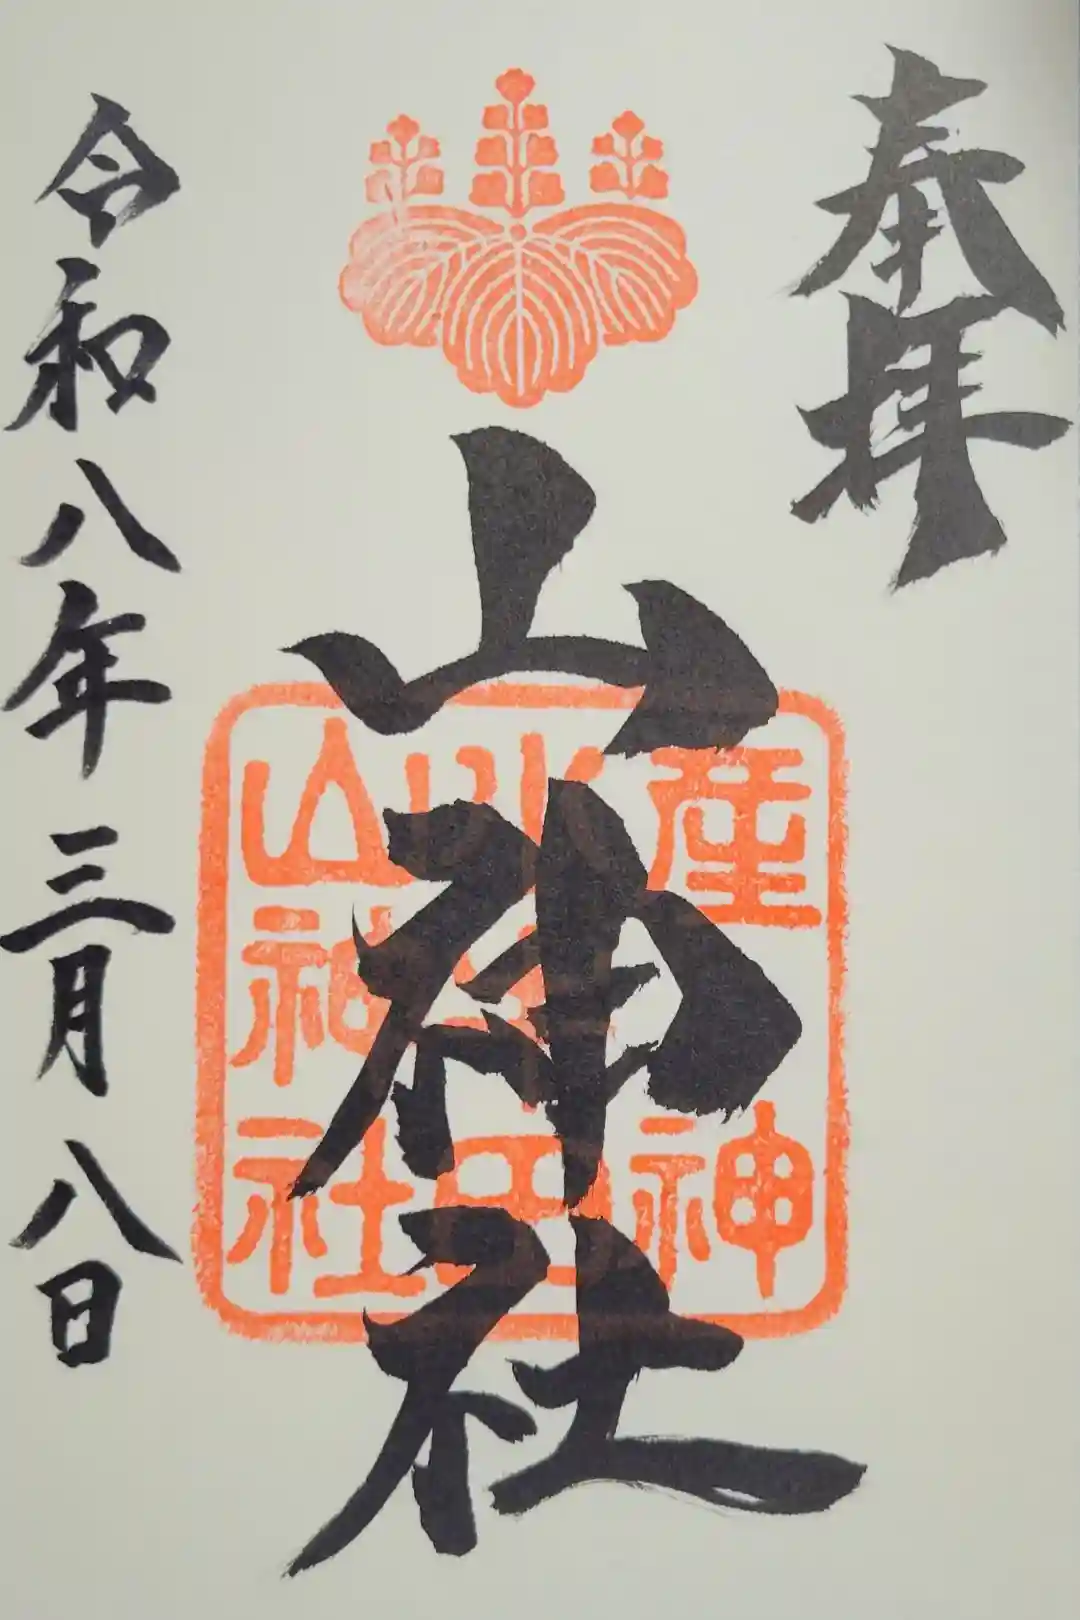 奉拝
山神社
産神
小牛田
山神社
令和八年三月八日